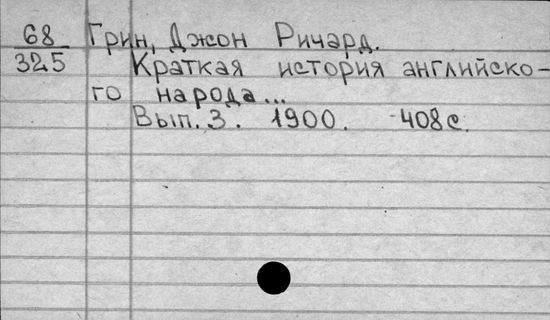 68 Грин, Джон Ричард.
325 Краткая история английско-
го народа...
Вып. 3. 1900. 408 с.